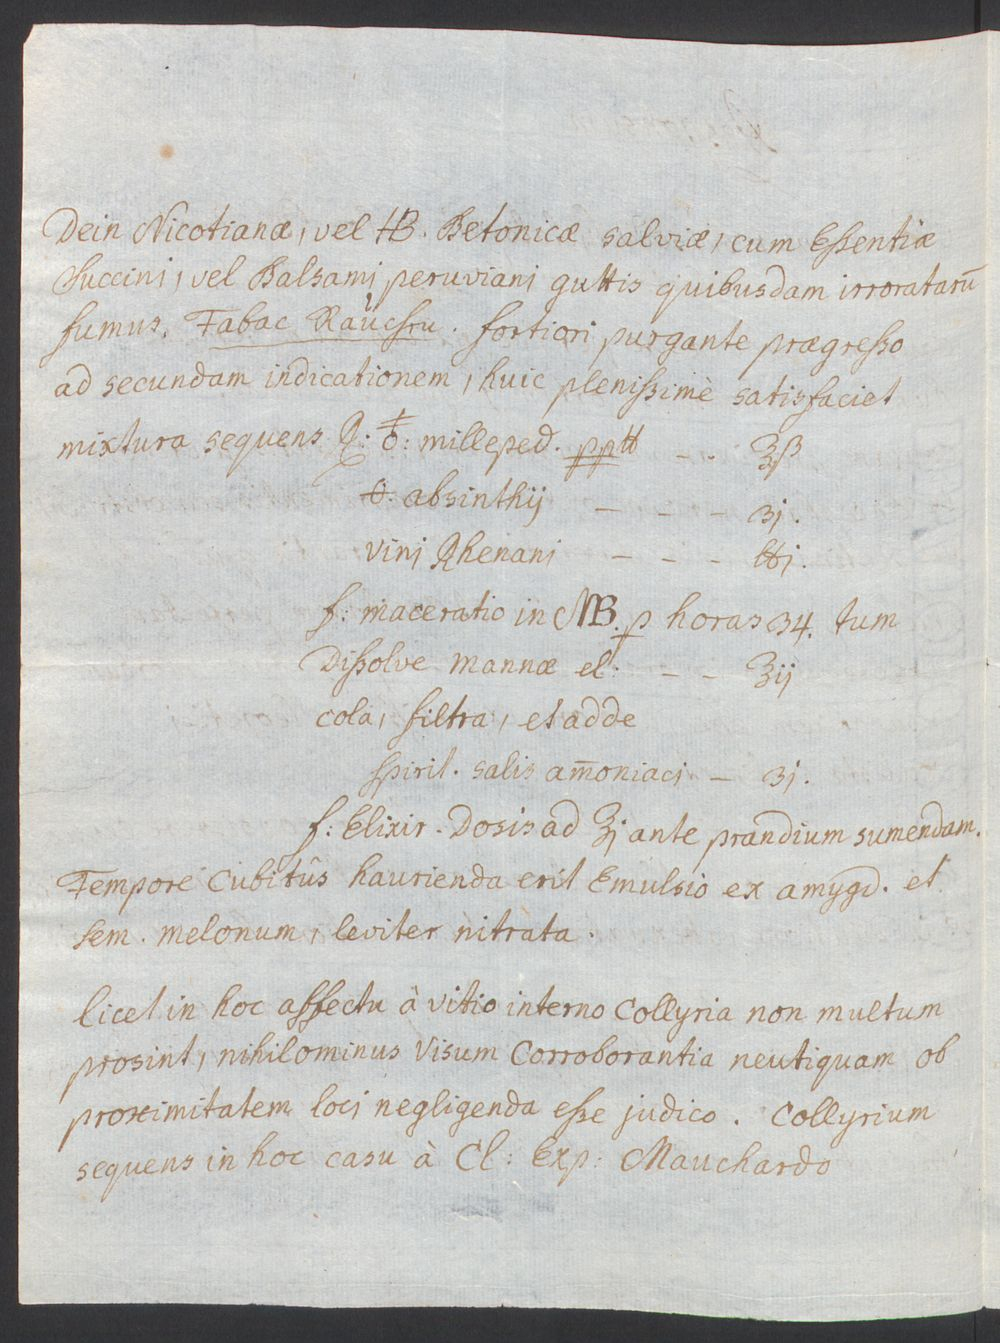 Dein Nicotianæ, vel HB. Betonicæ salviæ, cum Essentiæ
Succini, vel Balsami peruviani guttis quibusdam irroratarū
fumus. Tabac Räuchru. fortiori purgante prægresso
ad secundam indicationem, huic plenissimè satisfaciet
mixtura sequens ℞. milleped. pptt — . ℥ß
absinthij — — — ʒj.
Vini Rhenani — — — ℔j.
f: maceratio in MB. p horas 34. tum
Dissolve mannæ el: — — ℥ij
cola, filtra, et adde
spirit. salis am̄oniaci — ʒj.
f: Elixir. Dosis ad ℥j ante prandium sumendam.
Tempore Cubitûs haurienda erit Emulsio ex amygd. et
sem. melonum, leviter nitrata.
licet in hoc affectu à vitio interno Collyria non multum
prosint, nihilominus Visum Corroborantia neutiquam ob
proximitatem loci negligenda esse judico. Collyrium
sequens in hoc casu à Cl: Exp: Mauchardo